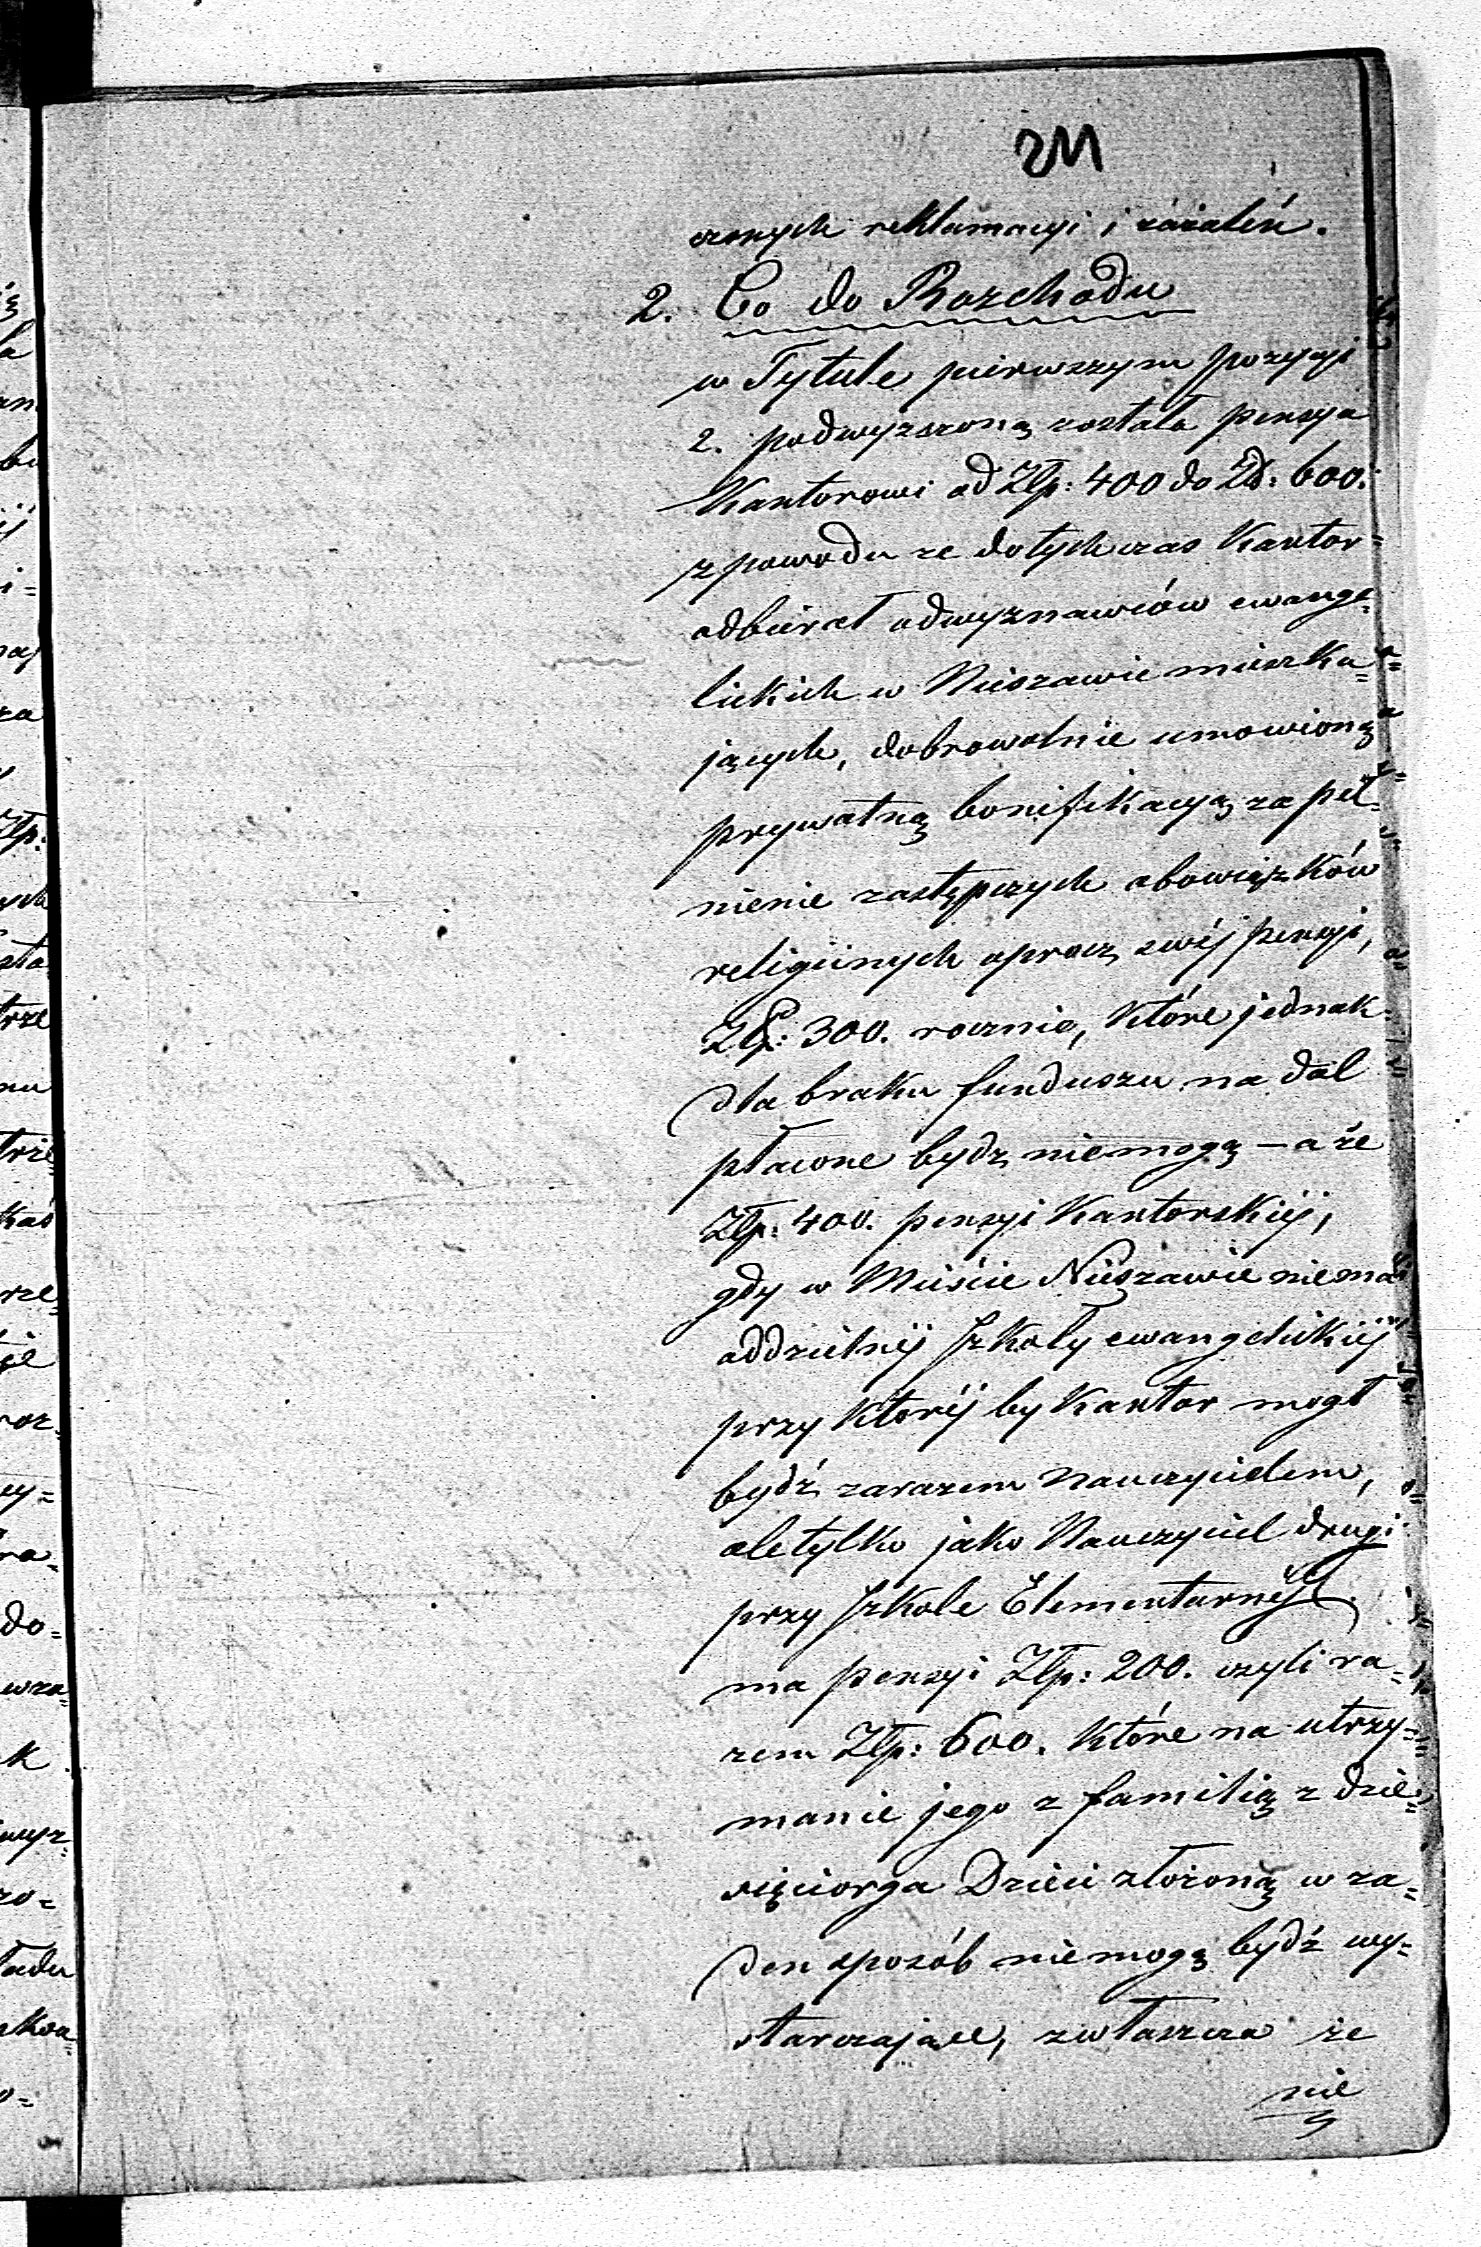 211
czonych reklamacyi i zażaleń.
2. Co do Rozchodu
w Tytule pierwszym pozycyi
2. podwyzszoną została pensya
Kantorowi od Złp: 400 do Zł: 600.
z powodu ze dotychczas Kantor
odbierał od wyznawców ewange=
lickich w Nieszawie mieszka=
jących, dobrowolnie umowioną
prywatną bonifikacyą za peł=
nienie zastępczych obowiązków
religiinych oprocz swéj pensyi,
Złp: 300. rocznie, które jednak
dla braku funduszu na dal
płacone bydz niemogą – a że
Złp: 400. pensyi Kantorskiéj,
gdy w Mieście Nieszawie niema
oddzielnéj szkoły ewangelickiéj
przy któréj by Kantor mogł
bydź zarazem Nauczycielem,
ale tylko jako Nauczyciel drugi
przy szkole Elementarnéj
ma pensyi Złp: 200. czyli ra=
zem Złp: 600. które na utrzy=
manie jego z familią z dzie=
sięciorga Dzieci złożoną w za=
den sposób niemogą bydź wy=
starczające, zwłaszcza że
nie